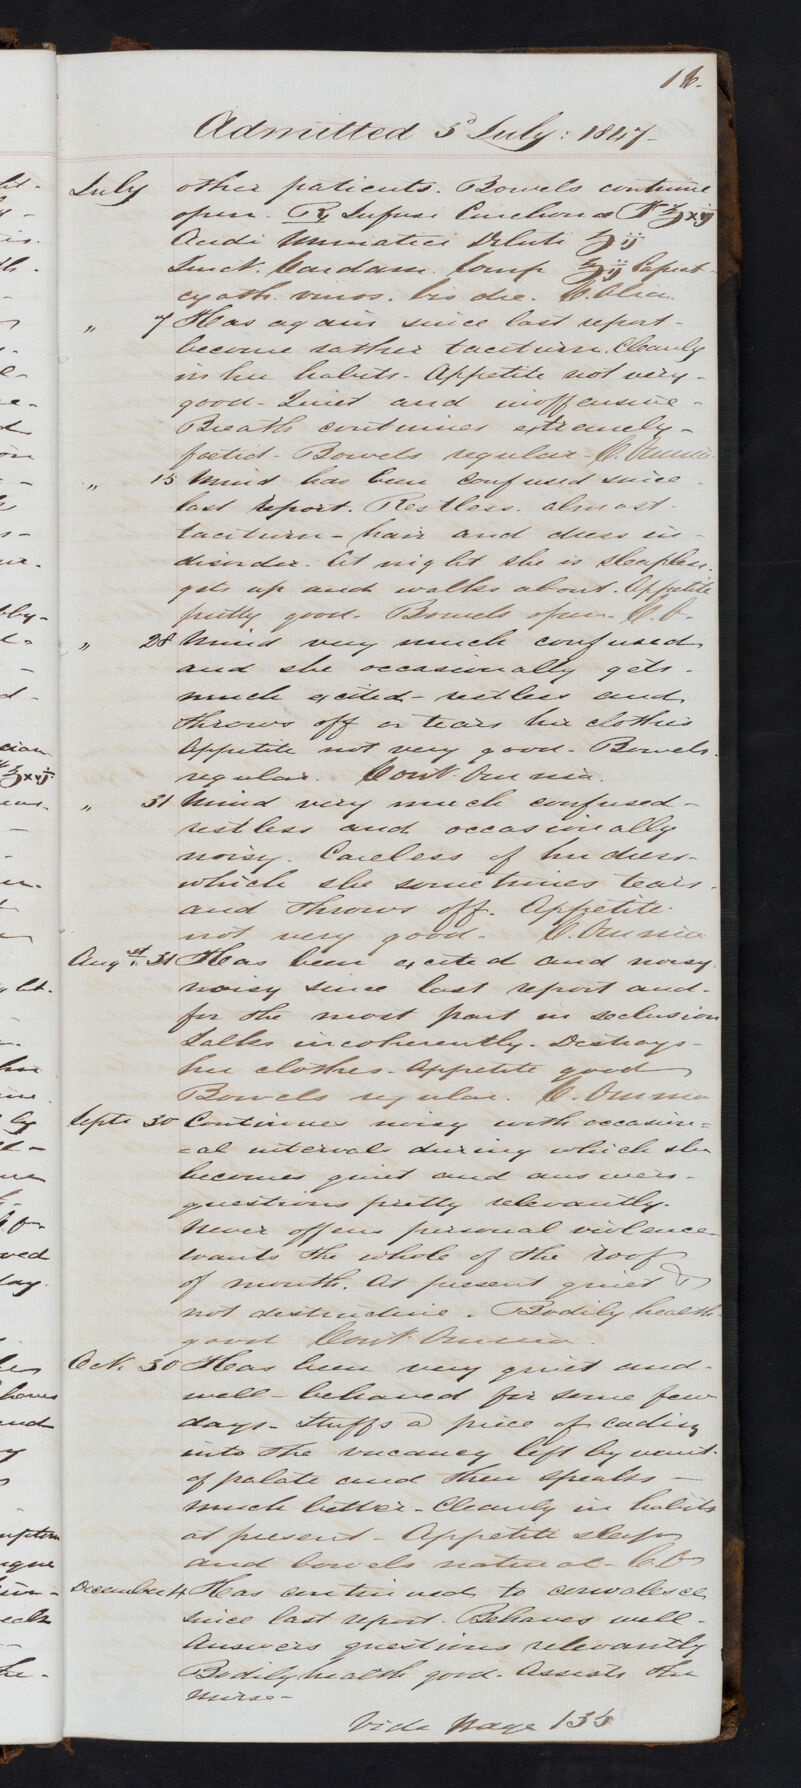 16.
Admitted 5 July: 1847-
July other patients. Bowels continue
open. Rx Infusi Cinchonæ ℥xvij
Acidi Muriatici Diluti ʒij
Tinct. Cardam. Comp ʒij Capiat
cyath. vinos. bis die. C. Alia.
" 7 Has again since last report-
become rather taciturn. Cleanly
in her habits- Appetite not very-
good- Quiet and inoffensive-
Breath continues extremely-
foetid- Bowels regular- C. Omnia.
" 15 Mind has been confused since
last report. Restless. almost-
taciturn- hair and dress in-
disorder. At night she is sleepless.
gets up and walks about. Appetite
pretty good. Bowels open. C. O.
" 28 Mind very much confused
and she occasionally gets.
much excited- restless and
throws off or tears her clothes
Appetite not very good. Bowels.
regular. Cont. Omnia.
" 31 Mind very much confused-
restless and occasionally
noisy. Careless of her dress-
which she sometimes tears.
and throws off. Appetite.
not very good. C. Omnia
Augst. 31 Has been excited and noisy
noisy since last report and-
for the most part in seclusion
Talks incoherently. Destroys-
her clothes. Appetite good
Bowels regular. C. Omnia
Septr 30 Continues noisy with occasion=
=al intervals during which she
becomes quiet and answers-
questions pretty relevantly.
Never offers personal violence
wants the whole of the roof
of mouth. At present quiet &
not destructive. Bodily health
good Cont. Omnia.
Oct. 30 Has been very quiet and-
well-behaved for some few
days- Stuffs a piece of
into the vacancy left by want-
of palate and then speaks-
much better- Cleanly in habits
at present- Appetite sleep
and bowels natural- C. O
December 4 Has continued to convalesce
since last report. Behaves well-
Answers questions relevantly
Bodily health good. Assists the
nurse-
Vide page 135